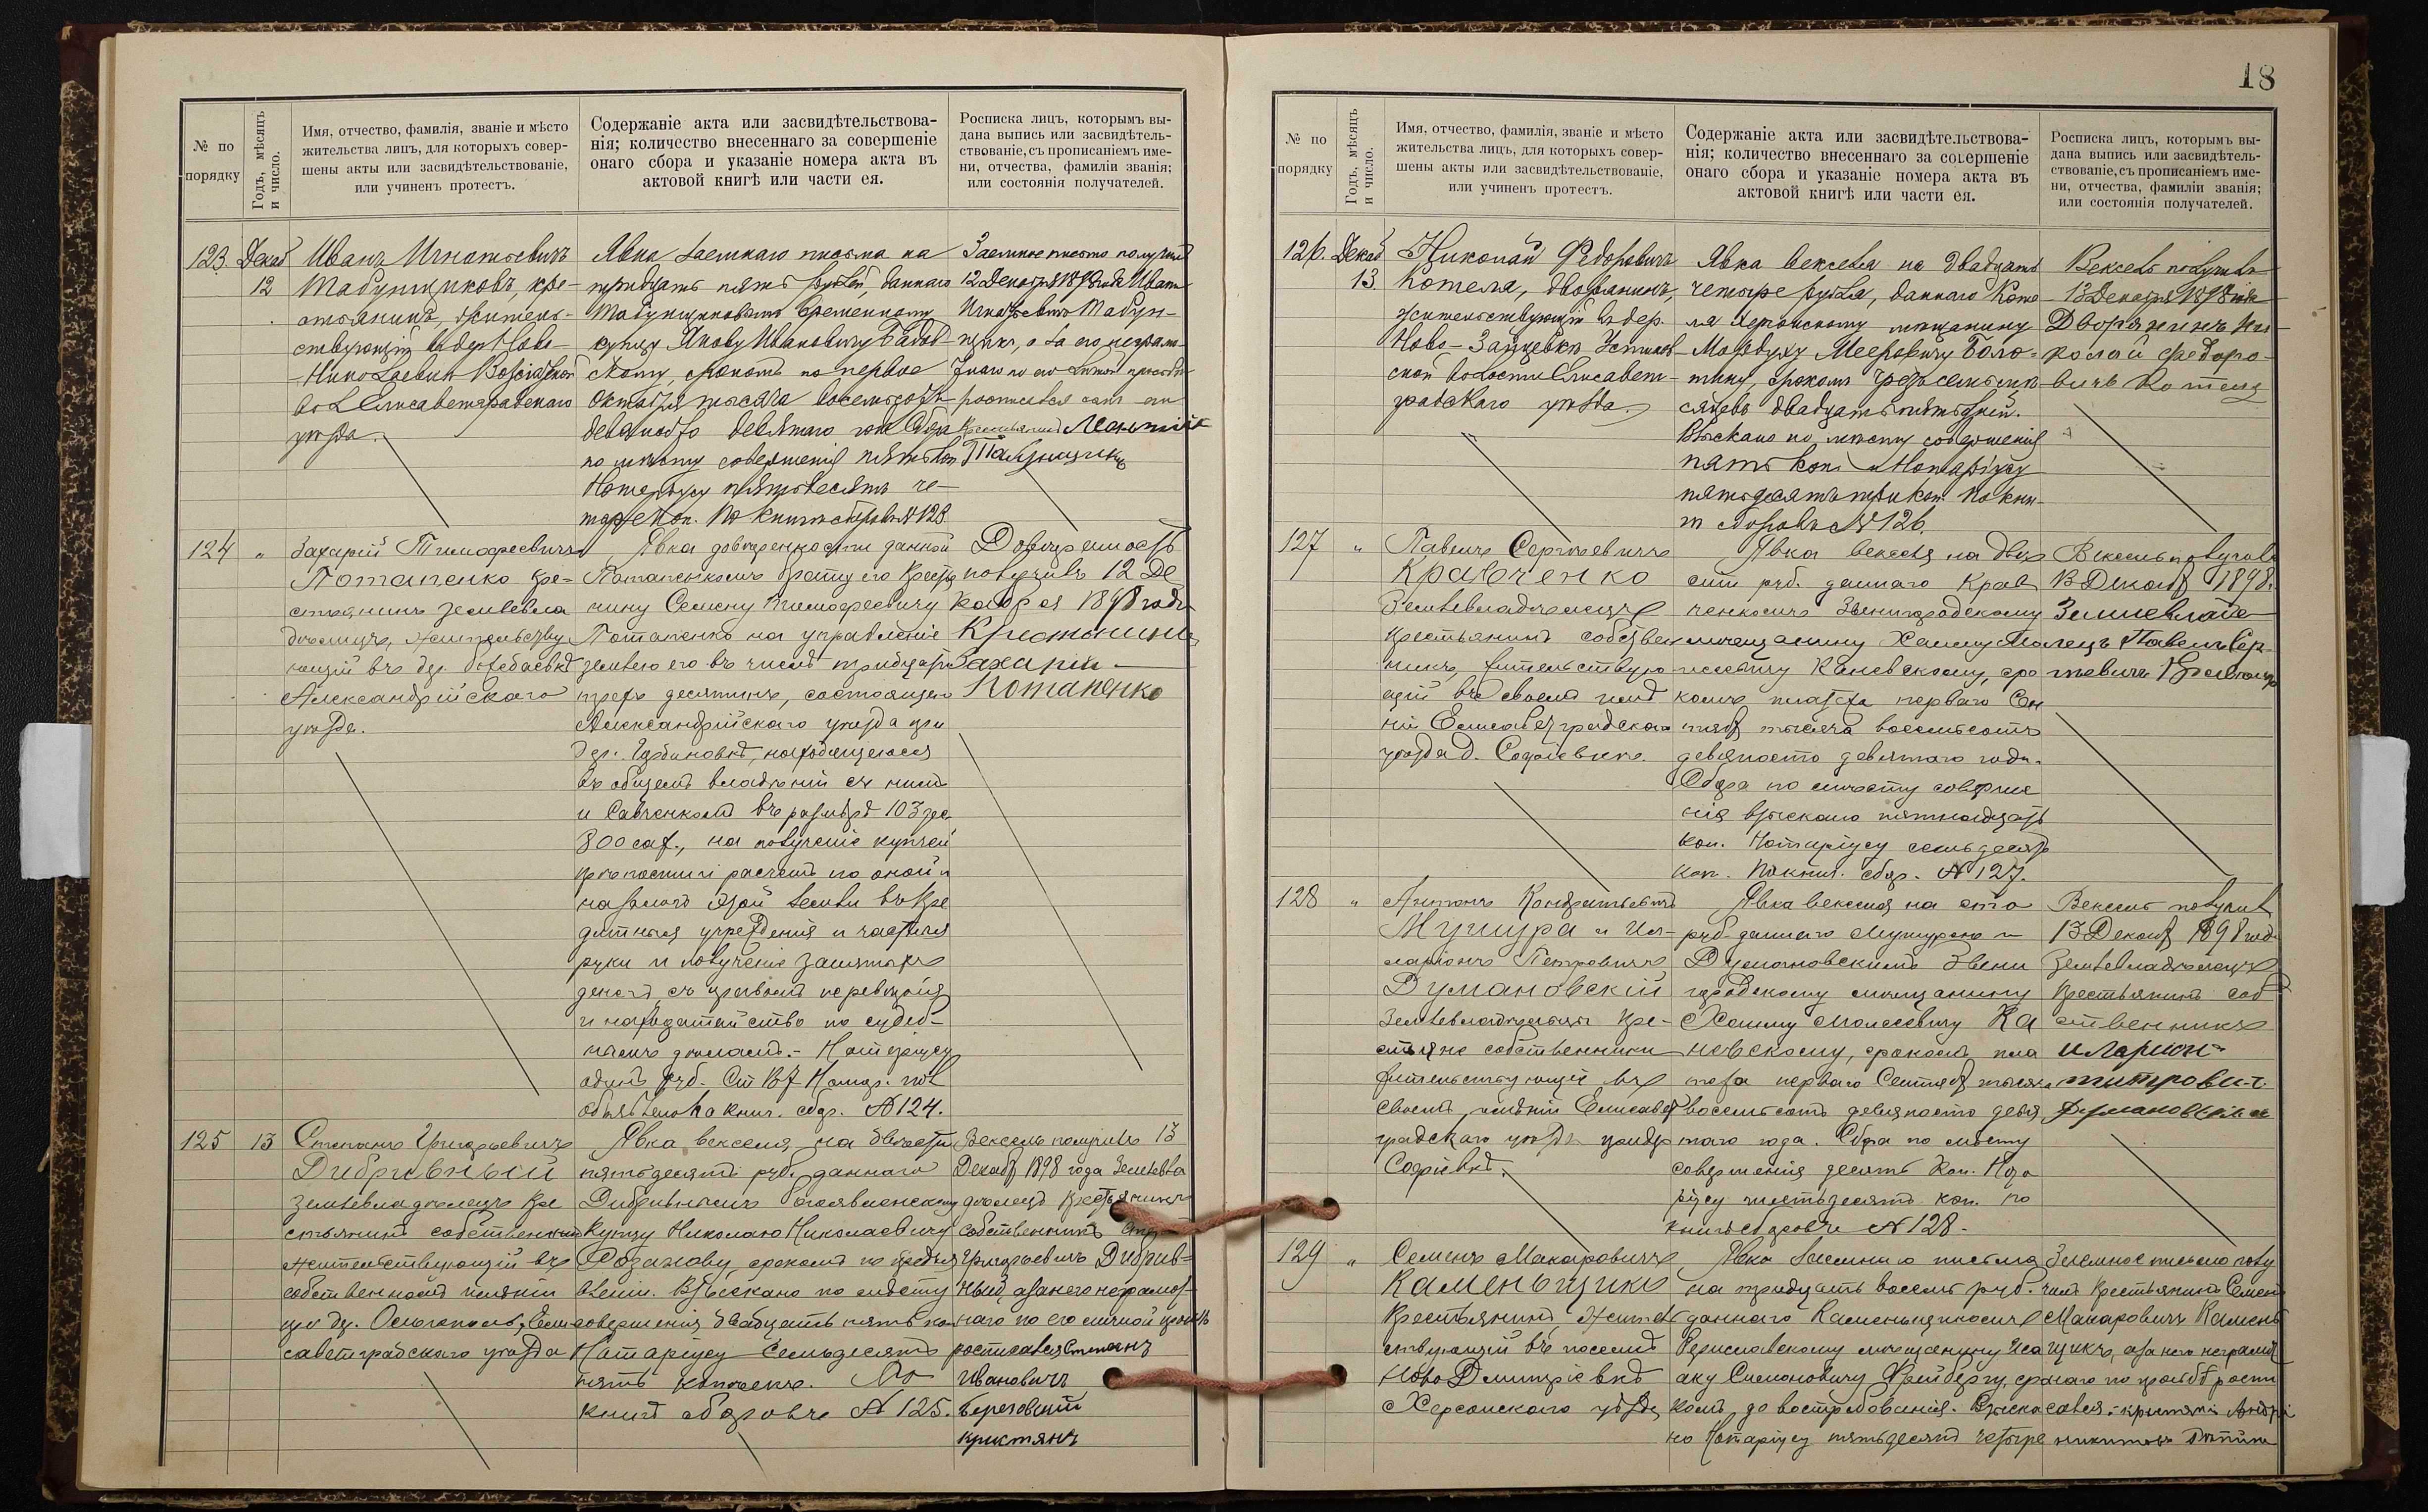 18
№ по порядку
Годъ, мѣсяцъ и число.
Имя, отчество, фамилія, званіе и мѣсто
жительства лицъ, для которыхъ совер-
шены акты или засвидѣтельствованіе,
или учиненъ протестъ.
Содержаніе акта или засвидѣтельствова-
нія; количество внесеннаго за совершеніе
онаго сбора и указаніе номера акта въ
актовой книгѣ или части ея.
Росписка лицъ, которымъ вы-
дана выпись или засвидѣтель-
ствованіе, съ прописаніемъ име-
ни, отчества, фамиліи званія;
или состоянія получателей.
123. Декаб
12
Иванъ Игнатьевичъ
Табунщиковъ, кре-
стьянинъ, житель-
ствующій въ дер. Ново-
Николаевкѣ
Елисаветградскаго
уѣзда.
Явка заемнаго письма на
тридцать пять рублей, даннаго
Табунщиковымъ временному
купцу Якову Ивановичу
скому, срокомъ по первое
Октября тысяча восемьсотъ
девяносто девятаго года. Сбора
по мѣсту совершенія пять коп.
Нотаріусу пятьдесятъ че-
тыре коп. По книгѣ сборовъ №
Заемное письмо получилъ
12 Декабря 1898 года Иванъ
Игнатьевичъ Табун-
щиковъ, а за его неграмот-
124 "
Захарій Тимофеевичъ
Потапенко кре-
стьянинъ землевла
дѣлецъ, жительству
ющій въ де.
Александрійскаго
уѣзда.
Явка довѣренности данной
Потапенкомъ брату его крестья
нину Семену Тимофеевичу
Потапенко на управленіе
землею его въ числѣ тридцати
трехъ десятинъ, состоящею
Александрійскаго уѣзда при
дер. находящеюся
въ общемъ владѣніи съ нимъ
и Савченкомъ въ размѣрѣ 103 дес.
800 саж., на полученіе купчей
крѣпости и расчетъ по оной и
на залогъ этой земли въ кре
дитныя учрежденія и частныя
руки и полученіе занятыхъ
денегъ съ правомъ передовѣрія
и ходатайство по судеб-
нымъ дѣламъ. - Нотаріусу
одинъ руб.
объявлено. По книг. сбор. № 124.
Довѣренность
получилъ 12 Де
кабря 1898 года
Захарій
Потапенко
125 13
Степанъ Григорьевичъ
Дибривный
землевладѣлецъ кре
стьянинъ собственникъ
жительствующій въ
собственномъ имѣніи
при де. Ольгополь, Ели
саветградскаго уѣзда
Явка векселя, на двѣсти
пятьдесятъ руб. даннаго
Дибривнымъ Богоявленскому
купцу Николаю Николаевичу
Розанову, срокомъ по предъя
вленіи. Взыскано по мѣсту
совершенія двадцать пять ко
Нотаріусу Семьдесятъ
пять копѣекъ. По
книгѣ сборовъ № 125.
Вексель получилъ 13
Декабр 1898 года Землевла
дѣлецъ крестьянинъ
собственникъ
Григорьевичъ Дибрив-
ный, а за него неграмот-
наго по его личной просьбѣ
росписался Степанъ
Ивановичъ
Березовскій
Кристянъ
№ по порядку
Годъ, мѣсяцъ и число.
Имя, отчество, фамилія, званіе и мѣсто
жительства лицъ, для которыхъ совер-
шены акты или засвидѣтельствованіе,
или учиненъ протестъ.
Содержаніе акта или засвидѣтельствова-
нія; количество внесеннаго за совершеніе
онаго сбора и указаніе номера акта въ
актовой книгѣ или части ея.
Росписка лицъ, которымъ вы-
дана выпись или засвидѣтель-
ствованіе, съ прописаніемъ име-
ни, отчества, фамиліи званія;
или состоянія получателей.
126. Декаб
13.
Николай Федоровичъ
Котеля, дворянинъ,
жительствующій въ дер.
Ново-Зайцевкѣ
ской волости Елисавет-
градскаго уѣзда.
Явка векселя на двадцать
четыре рубля, даннаго Коте-
ля Херсонскому мѣщанину
Мордуху Мееровичу
срокомъ чрезъ семь мѣ
сяцевъ двадцать пять дней.
Взыскано по мѣсту совершенія
пять коп. и Нотаріусу
пятьдесятъ три коп. По кни-
гѣ сборовъ № 126.
Вексель получилъ
13 Декабря 1898 года
Дворянинъ Ни-
колай Федоро-
вичъ Котеля
127 "
Павелъ Сергѣевичъ
Кравченко
Землевладѣлецъ
крестьянинъ собствен
никъ, жительствую-
щій въ своемъ имѣ
ніи Елисаветградскаго
уѣзда д. Софіевкѣ.
Явка векселя на двѣ
сти руб. даннаго Крав
ченкомъ Звенигородскому
мѣщанину Хаиму
Каневскому, сро
комъ платежа перваго Сен
тября тысяча восемьсотъ
девяносто девятаго года.
Сбора по мѣсту соверше
нія взыскано пятнадцать
коп. Нотаріусу семьдесятъ
коп. По книг. сбор. № 127.
Вексель получилъ
13 Декабр 1898.
Землевладѣ
лецъ Павелъ Сер-
гѣевичъ Кравченко
128 "
Антонъ Кондратьевичъ
Мушура и Ил-
ларіонъ Петровичъ
Думановскій
Землевладѣльцы кре-
стьяне собственники
жительствующіе въ
своемъ имѣніи Елисавет
градскаго уѣзда при дер
Софіевкѣ.
Явка векселя на сто
руб. даннаго Мушурою и
Думановскимъ Звени
городскому мѣщанину
Хаиму Мошковичу Ка
невскому, срокомъ пла
тежа перваго Сентябр тысяча
восемьсотъ девяносто девя
таго года. Сбора по мѣсту
совершенія десять коп. Нота
ріусу шестьдесятъ коп. по
книгѣ сборовъ № 128.
Вексель получилъ
13 Декабр 1898 года
Землевладѣлецъ
крестьянинъ соб
ственникъ
Иларион
129 "
Семенъ Макаровичъ
Каменьщикъ
Крестьянинъ, житель
ствующій въ поселкѣ
Ново Дмитріевкѣ
Херсонскаго уѣзда,
Явка заемнаго письма
на тридцать восемь руб.
даннаго Каменьщикомъ
Бериславскому мѣщанину Иса
аку Симоновичу Фрейбергу, сро
комъ до востребованія. Взыска
но Нотаріусу пятьдесятъ четыре
Заемное письмо полу
чилъ Крестьянинъ Семен
Макаровичъ Камень
щикъ, а за него неграмот
наго по просьбѣ роспи
сался